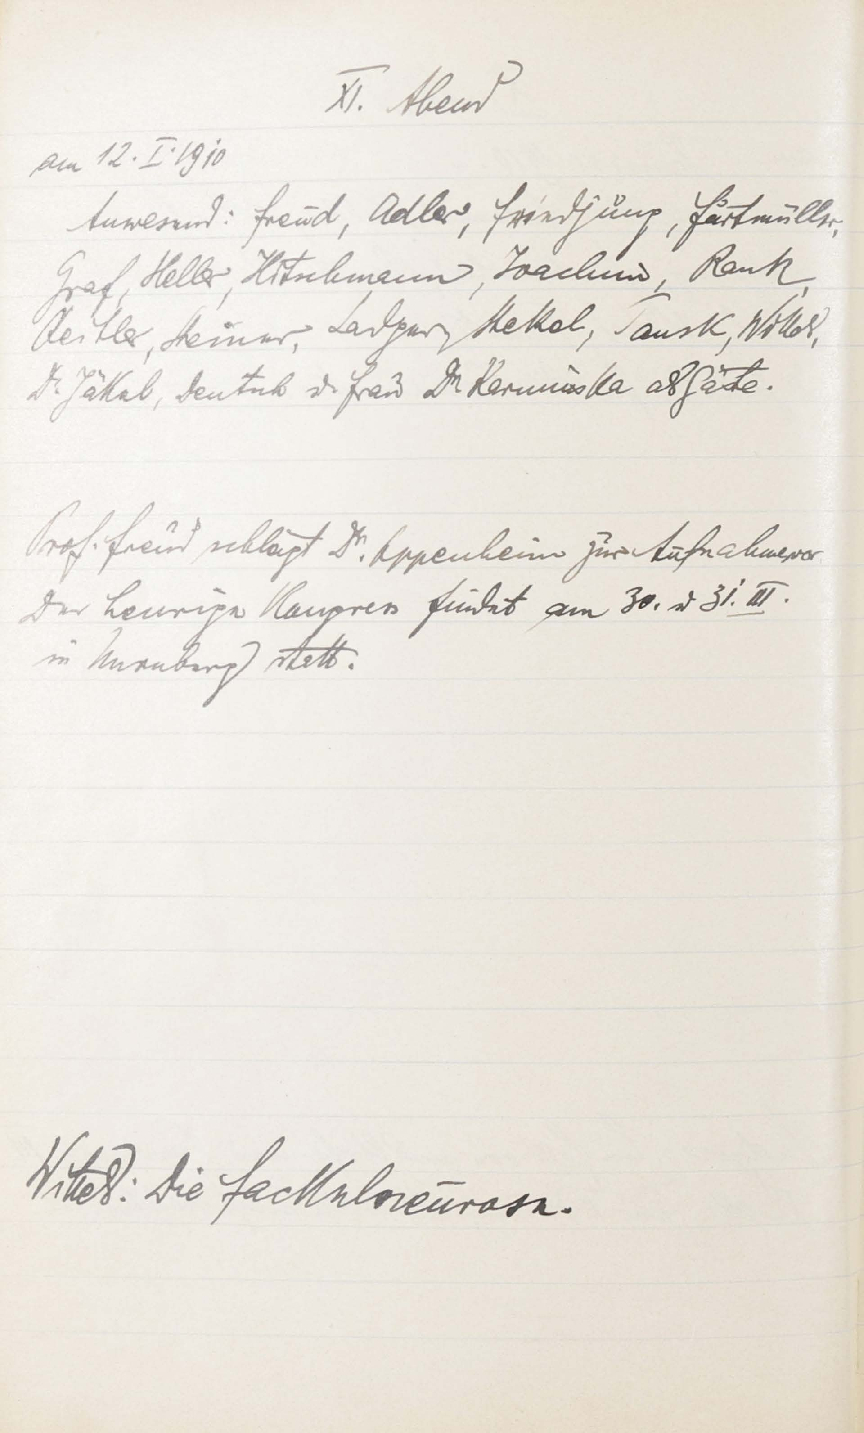 XI. Abend
am 12. I. 1910
Anwesend: Freud, Adler, Friedjung, Furtmüller,
Graf, Heller, Hitschmann, Joachim, Rank,
Reitler, Steiner, Sadger, Stekel, Tausk, Wittels,
Dr. Jekels, Deutsch u. Frau Dr. Karminska als Gäste.
Prof. Freud schlägt Dr. Oppenheim zur Aufnahme vor.
Der heurige Kongress findet am 30. u 31. III.
in Nürnberg statt.
Wittels: Die Fackelneurose.